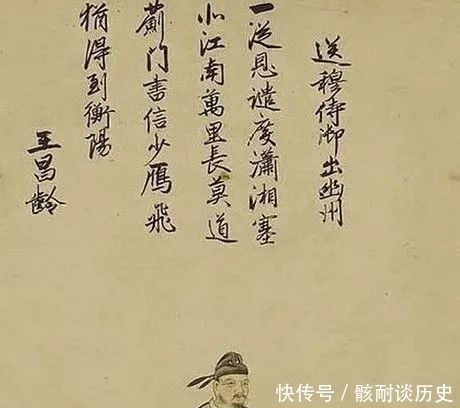 送穆侍御出幽州
一從恩譴度瀟湘塞
北江南萬里長莫道
薊门書信少鴈飛
猶得到衡陽
王昌齡
快传号 / 骸耐谈历史